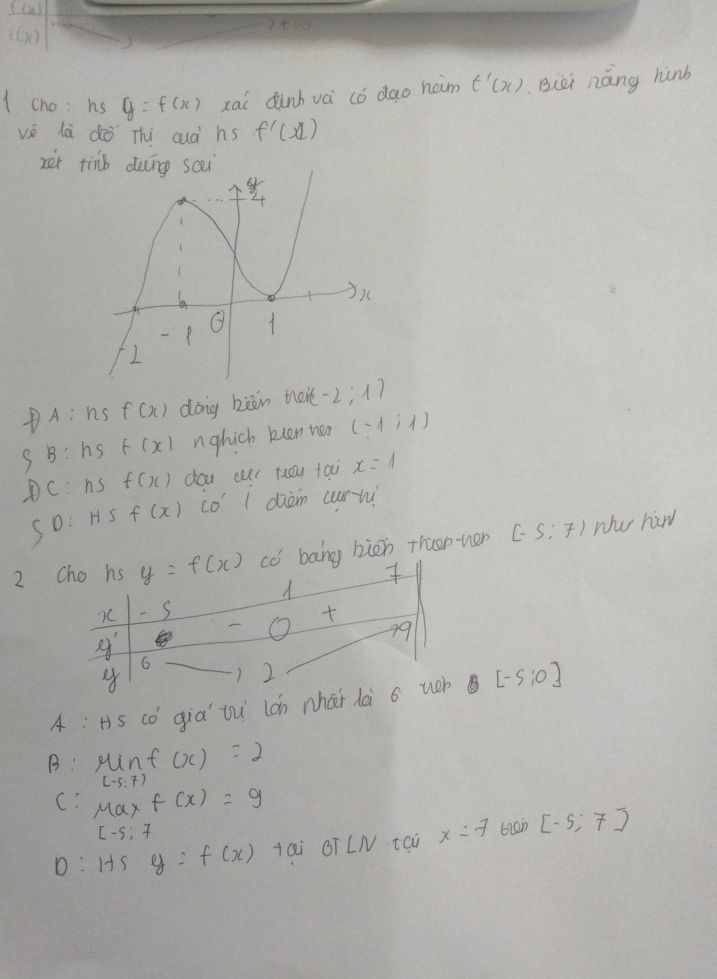 f(x)
f(x) +∞ +∞
1 Cho: hs y = f(x) xác định và có đạo hàm f'(x). Biết rằng hình
vẽ là đồ thị của hs f'(x)
xét tính đúng sai
y
4
x
-2 -1 O 1
Đ A: hs f(x) đồng biến trên (-2; 1)
S B: hs f(x) nghịch biến trên (-1; 1)
Đ C: hs f(x) đạt cực tiểu tại x = 1
S D: HS f(x) có 1 điểm cực trị
2 Cho hs y = f(x) có bảng biến thiên trên [-5; 7) như hình
x -5 1 7
y' - 0 +
y 6 2 9
A: HS có giá trị lớn nhất là 6 trên [-5;0]
B: Min f(x) = 2
[-5;7)
C: Max f(x) = 9
[-5; 7
D: HS y = f(x) tại GTLN tại x = 7 trên [-5; 7]